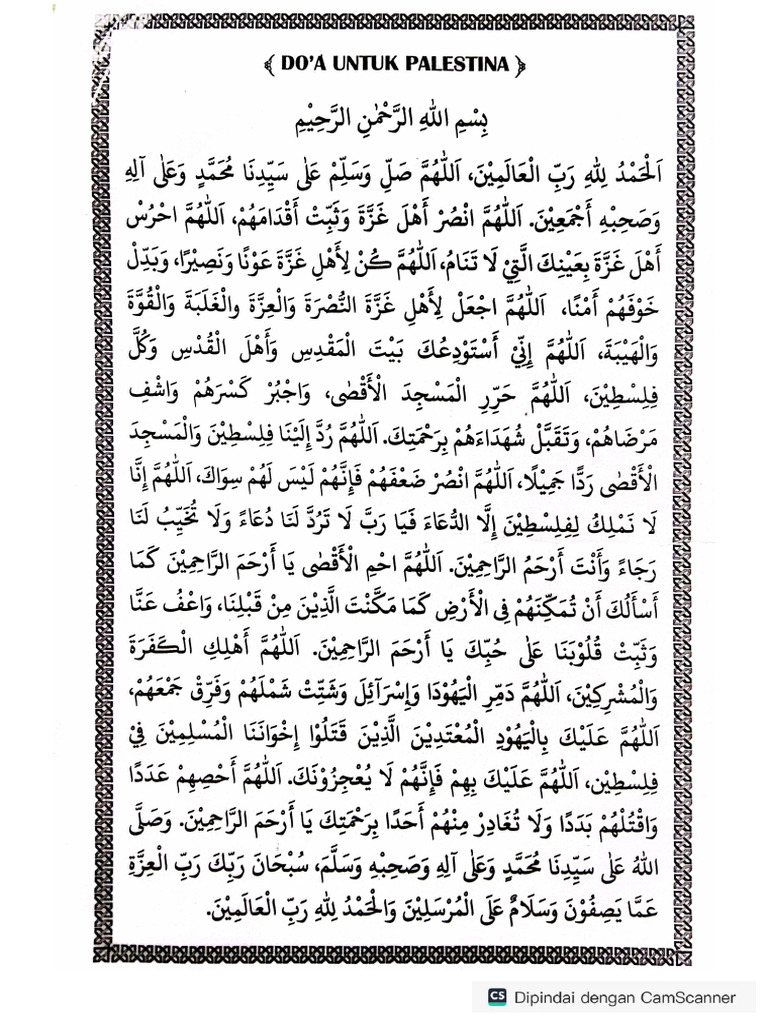 DO'A UNTUK PALESTINA
بِسْمِ اللهِ الرَّحْمٰنِ الرَّحِيْمِ
اَلْحَمْدُ لِلّٰهِ رَبِّ الْعَالَمِيْنَ، اَللّٰهُمَّ صَلِّ وَسَلِّمْ عَلٰى سَيِّدِنَا مُحَمَّدٍ وَعَلٰى آلِهِ
وَصَحْبِهِ أَجْمَعِيْنَ. اَللّٰهُمَّ انْصُرْ أَهْلَ غَزَّةَ وَثَبِّتْ أَقْدَامَهُمْ، اَللّٰهُمَّ احْرُسْ
أَهْلَ غَزَّةَ بِعَيْنِكَ الَّتِيْ لَا تَنَامُ، اَللّٰهُمَّ كُنْ لِأَهْلِ غَزَّةَ عَوْنًا وَنَصِيْرًا، وَبَدِّلْ
خَوْفَهُمْ أَمْنًا، اَللّٰهُمَّ اجْعَلْ لِأَهْلِ غَزَّةَ النُّصْرَةَ وَالْعِزَّةَ والْغَلَبَةَ وَالْقُوَّةَ
وَالْهَيْبَةَ، اَللّٰهُمَّ إِنِّيْ أَسْتَوْدِعُكَ بَيْتَ الْمَقْدِسِ وَأَهْلَ الْقُدْسِ وَكُلَّ
فِلِسْطِيْنَ، اَللّٰهُمَّ حَرِّرِ الْمَسْجِدَ الْأَقْصٰى، وَاجْبُرْ كَسْرَهُمْ وَاشْفِ
مَرْضَاهُمْ، وَتَقَبَّلْ شُهَدَاءَهُمْ بِرَحْمَتِكَ. اَللّٰهُمَّ رُدَّ إِلَيْنَا فِلِسْطِيْنَ وَالْمَسْجِدَ
الْأَقْصٰى رَدًّا جَمِيْلًا، اَللّٰهُمَّ انْصُرْ ضَعْفَهُمْ فَإِنَّهُمْ لَيْسَ لَهُمْ سِوَاكَ، اَللّٰهُمَّ إِنَّا
لَا نَمْلِكُ لِفِلِسْطِيْنَ إِلَّا الدُّعَاءَ فَيَا رَبَّ لَا تَرُدَّ لَنَا دُعَاءً وَلَا تُخَيِّبُ لَنَا
رَجَاءً وَأَنْتَ أَرْحَمُ الرَّاحِمِيْنَ. اَللّٰهُمَّ احْمِ الْأَقْصٰى يَا أَرْحَمَ الرَّاحِمِيْنَ كَمَا
أَسْأَلُكَ أَنْ تُمَكِّنَهُمْ فِى الْأَرْضِ كَمَا مَكَّنْتَ الَّذِيْنَ مِنْ قَبْلِنَا، وَاعْفُ عَنَّا
وَثَبِّتْ قُلُوْبَنَا عَلٰى حُبِّكَ يَا أَرْحَمَ الرَّاحِمِيْنَ. اَللّٰهُمَّ أَهْلِكِ الْكَفَرَةَ
وَالْمُشْرِكِيْنَ، اَللّٰهُمَّ دَمِّرِ الْيَهُوْدَا وَإِسْرَآئِلَ وَشَتِّتْ شَمْلَهُمْ وَفَرِّقْ جَمْعَهُمْ،
اَللّٰهُمَّ عَلَيْكَ بِالْيَهُوْدِ الْمُعْتَدِيْنَ الَّذِيْنَ قَتَلُوْا إِخْوَانَنَا الْمُسْلِمِيْنَ فِيْ
فِلِسْطِيْن، اَللّٰهُمَّ عَلَيْكَ بِهِمْ فَإِنَّهُمْ لَا يُعْجِزُوْنَكَ. اَللّٰهُمَّ أَحْصِهِمْ عَدَدًا
وَاقْتُلْهُمْ بَدَدًا وَلَا تُغَادِرْ مِنْهُمْ أَحَدًا بِرَحْمَتِكَ يَا أَرْحَمَ الرَّاحِمِيْنَ. وَصَلَّى
اللهُ عَلٰى سَيِّدِنَا مُحَمَّدٍ وَعَلٰى آلِهِ وَصَحْبِهِ وَسَلَّمَ، سُبْحَانَ رَبِّكَ رَبِّ الْعِزَّةِ
عَمَّا يَصِفُوْنَ وَسَلَامٌ عَلَى الْمُرْسَلِيْنَ وَالْحَمْدُ لِلّٰهِ رَبِّ الْعَالَمِيْنَ.
CS Dipindai dengan CamScanner